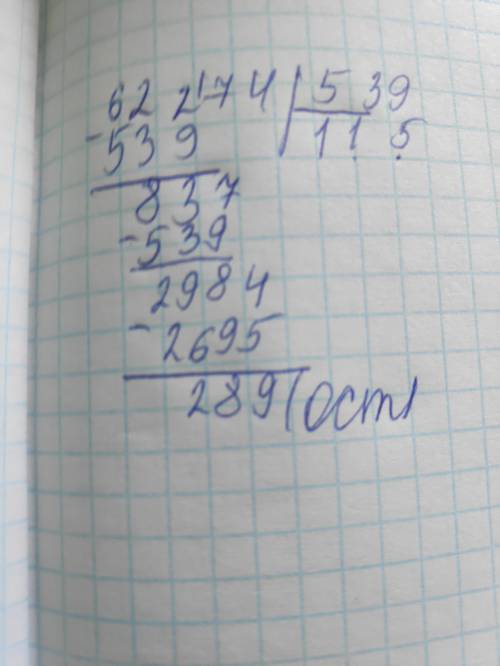 62 2'74 | 539
- 539 115
837
- 539
2984
- 2695
289 (ост)